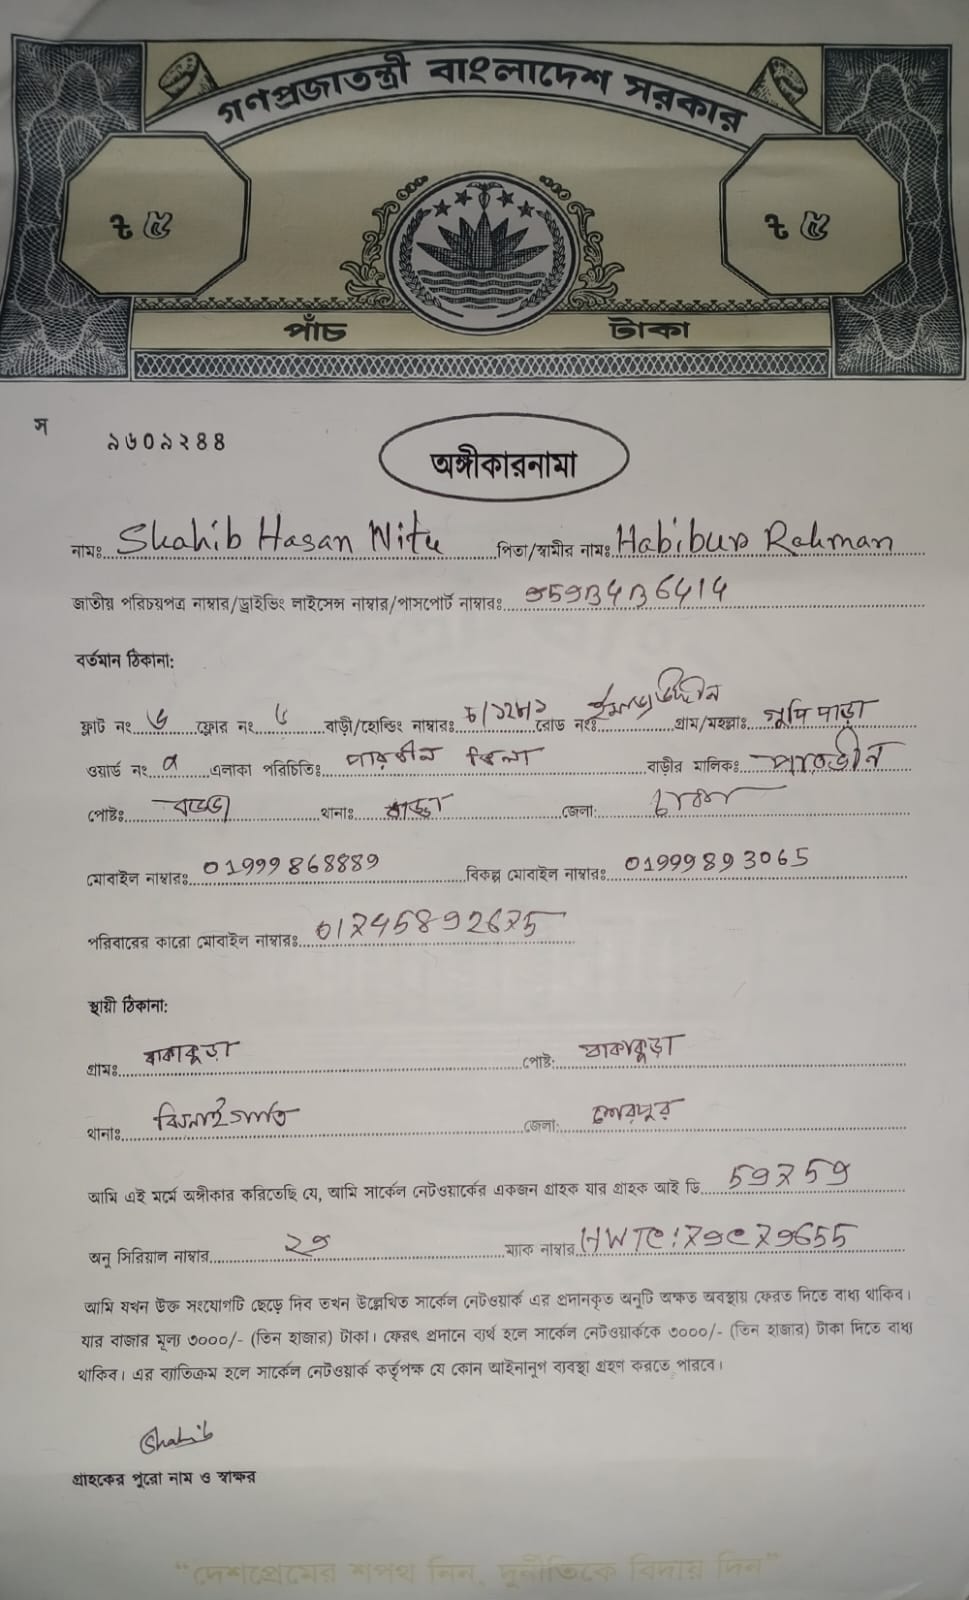 গণপ্রজাতন্ত্রী বাংলাদেশ সরকার
৳ ৫ ৳ ৫
পাঁচ টাকা
স ৯৬০৯২৪৪
অঙ্গীকারনামা
নামঃ Shahib Hasan Nitu পিতা/স্বামীর নামঃ Habibur Rahman
জাতীয় পরিচয়পত্র নাম্বার/ড্রাইভিং লাইসেন্স নাম্বার/পাসপোর্ট নাম্বারঃ
বর্তমান ঠিকানা:
ফ্লাট নং ৬ ফ্লোর নং ৬ বাড়ী/হোল্ডিং নাম্বারঃ রোড নংঃ গ্রাম/মহল্লাঃ গুপি পাড়া
ওয়ার্ড নং এলাকা পরিচিতিঃ পারভীন ভিলা বাড়ীর মালিকঃ পারভীন
পোষ্টঃ বাড্ডা থানাঃ বাড্ডা জেলা: ঢাকা
মোবাইল নাম্বারঃ 01999868889 বিকল্প মোবাইল নাম্বারঃ 01999893065
পরিবারের কারো মোবাইল নাম্বারঃ
স্থায়ী ঠিকানা:
গ্রামঃ বাকাকুড়া পোষ্ট: বাকাকুড়া
থানাঃ ঝিনাইগাতি জেলা: শেরপুর
আমি এই মর্মে অঙ্গীকার করিতেছি যে, আমি সার্কেল নেটওয়ার্কের একজন গ্রাহক যার গ্রাহক আই ডি
অনু সিরিয়াল নাম্বার ম্যাক নাম্বার
আমি যখন উক্ত সংযোগটি ছেড়ে দিব তখন উল্লেখিত সার্কেল নেটওয়ার্ক এর প্রদানকৃত অনুটি অক্ষত অবস্থায় ফেরত দিতে বাধ্য থাকিব।
যার বাজার মূল্য ৩০০০/- (তিন হাজার) টাকা। ফেরৎ প্রদানে ব্যর্থ হলে সার্কেল নেটওয়ার্ককে ৩০০০/- (তিন হাজার) টাকা দিতে বাধ্য
থাকিব। এর ব্যতিক্রম হলে সার্কেল নেটওয়ার্ক কর্তৃপক্ষ যে কোন আইনানুণ ব্যবস্থা গ্রহণ করতে পারবে।
Shahib
গ্রাহকের পুরো নাম ও স্বাক্ষর
“দেশপ্রেমের শপথ নিন, দুর্নীতিকে বিদায় দিন”